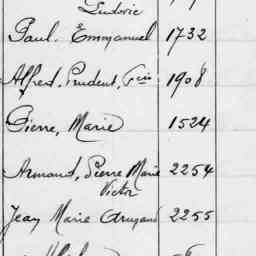 Ludovic
Paul, Emmanuel 1732
Alfred, Prudent, Fcois 1908
Pierre, Marie 1524
Armand, Pierre Marie 2254
Victor
Jean Marie Armand 2255